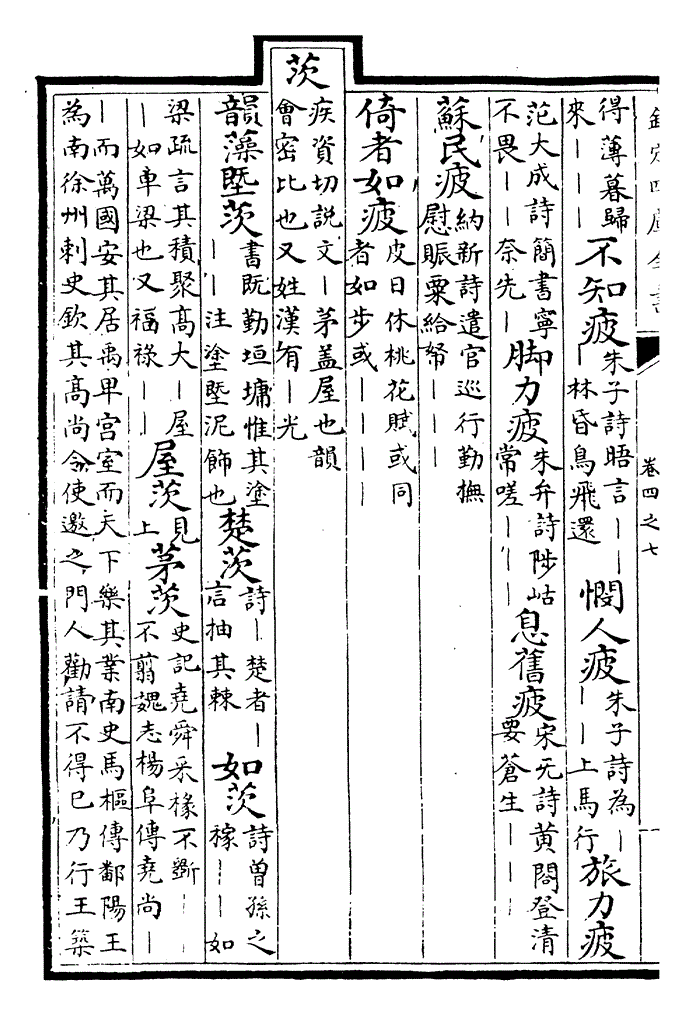 欽定四庫全書 卷四之七
得薄暮歸
來｜｜｜
不知疲
朱子詩晤言｜｜
｜林昏鳥飛還
憫人疲
朱子詩為｜
｜｜上馬行
旅力疲
范大成詩簡書寧
不畏｜｜奈先｜
脚力疲
朱弁詩陟岵
常嗟｜｜｜
息舊疲
宋无詩黄閣登清
要蒼生｜｜｜
蘇民疲
納新詩遣官巡行勤撫
慰賑粟給帑｜｜｜
倚者如疲
皮日休桃花賦或同
者如步或｜｜｜｜
茨
疾資切説文｜茅盖屋也韻
會密比也又姓漢有｜光
韻藻塈茨
書既勤垣墉惟其塗
｜｜注塗塈泥飾也
楚茨
詩｜楚者｜
言抽其棘
如茨
詩曽孫之
稼｜｜如
梁疏言其積聚髙大｜屋
｜如車梁也又福禄｜｜
屋茨
見
上
茅茨
史記堯舜采椽不斲｜
不翦魏志楊阜傳堯尚｜
｜而萬國安其居禹卑宫室而天下樂其業南史馬樞傳鄱陽王
為南徐州刺史欽其髙尚令使邀之門人勸請不得已乃行王築